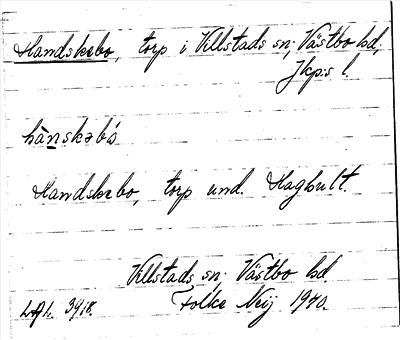 Handskebo, torp i Villstads sn; Västbo hd,
Jkp:s l.
hànskəbó
Handskebo, torp und. Haghult.
Villstads sn; Västbo hd
3918. Folke Neij 1940.